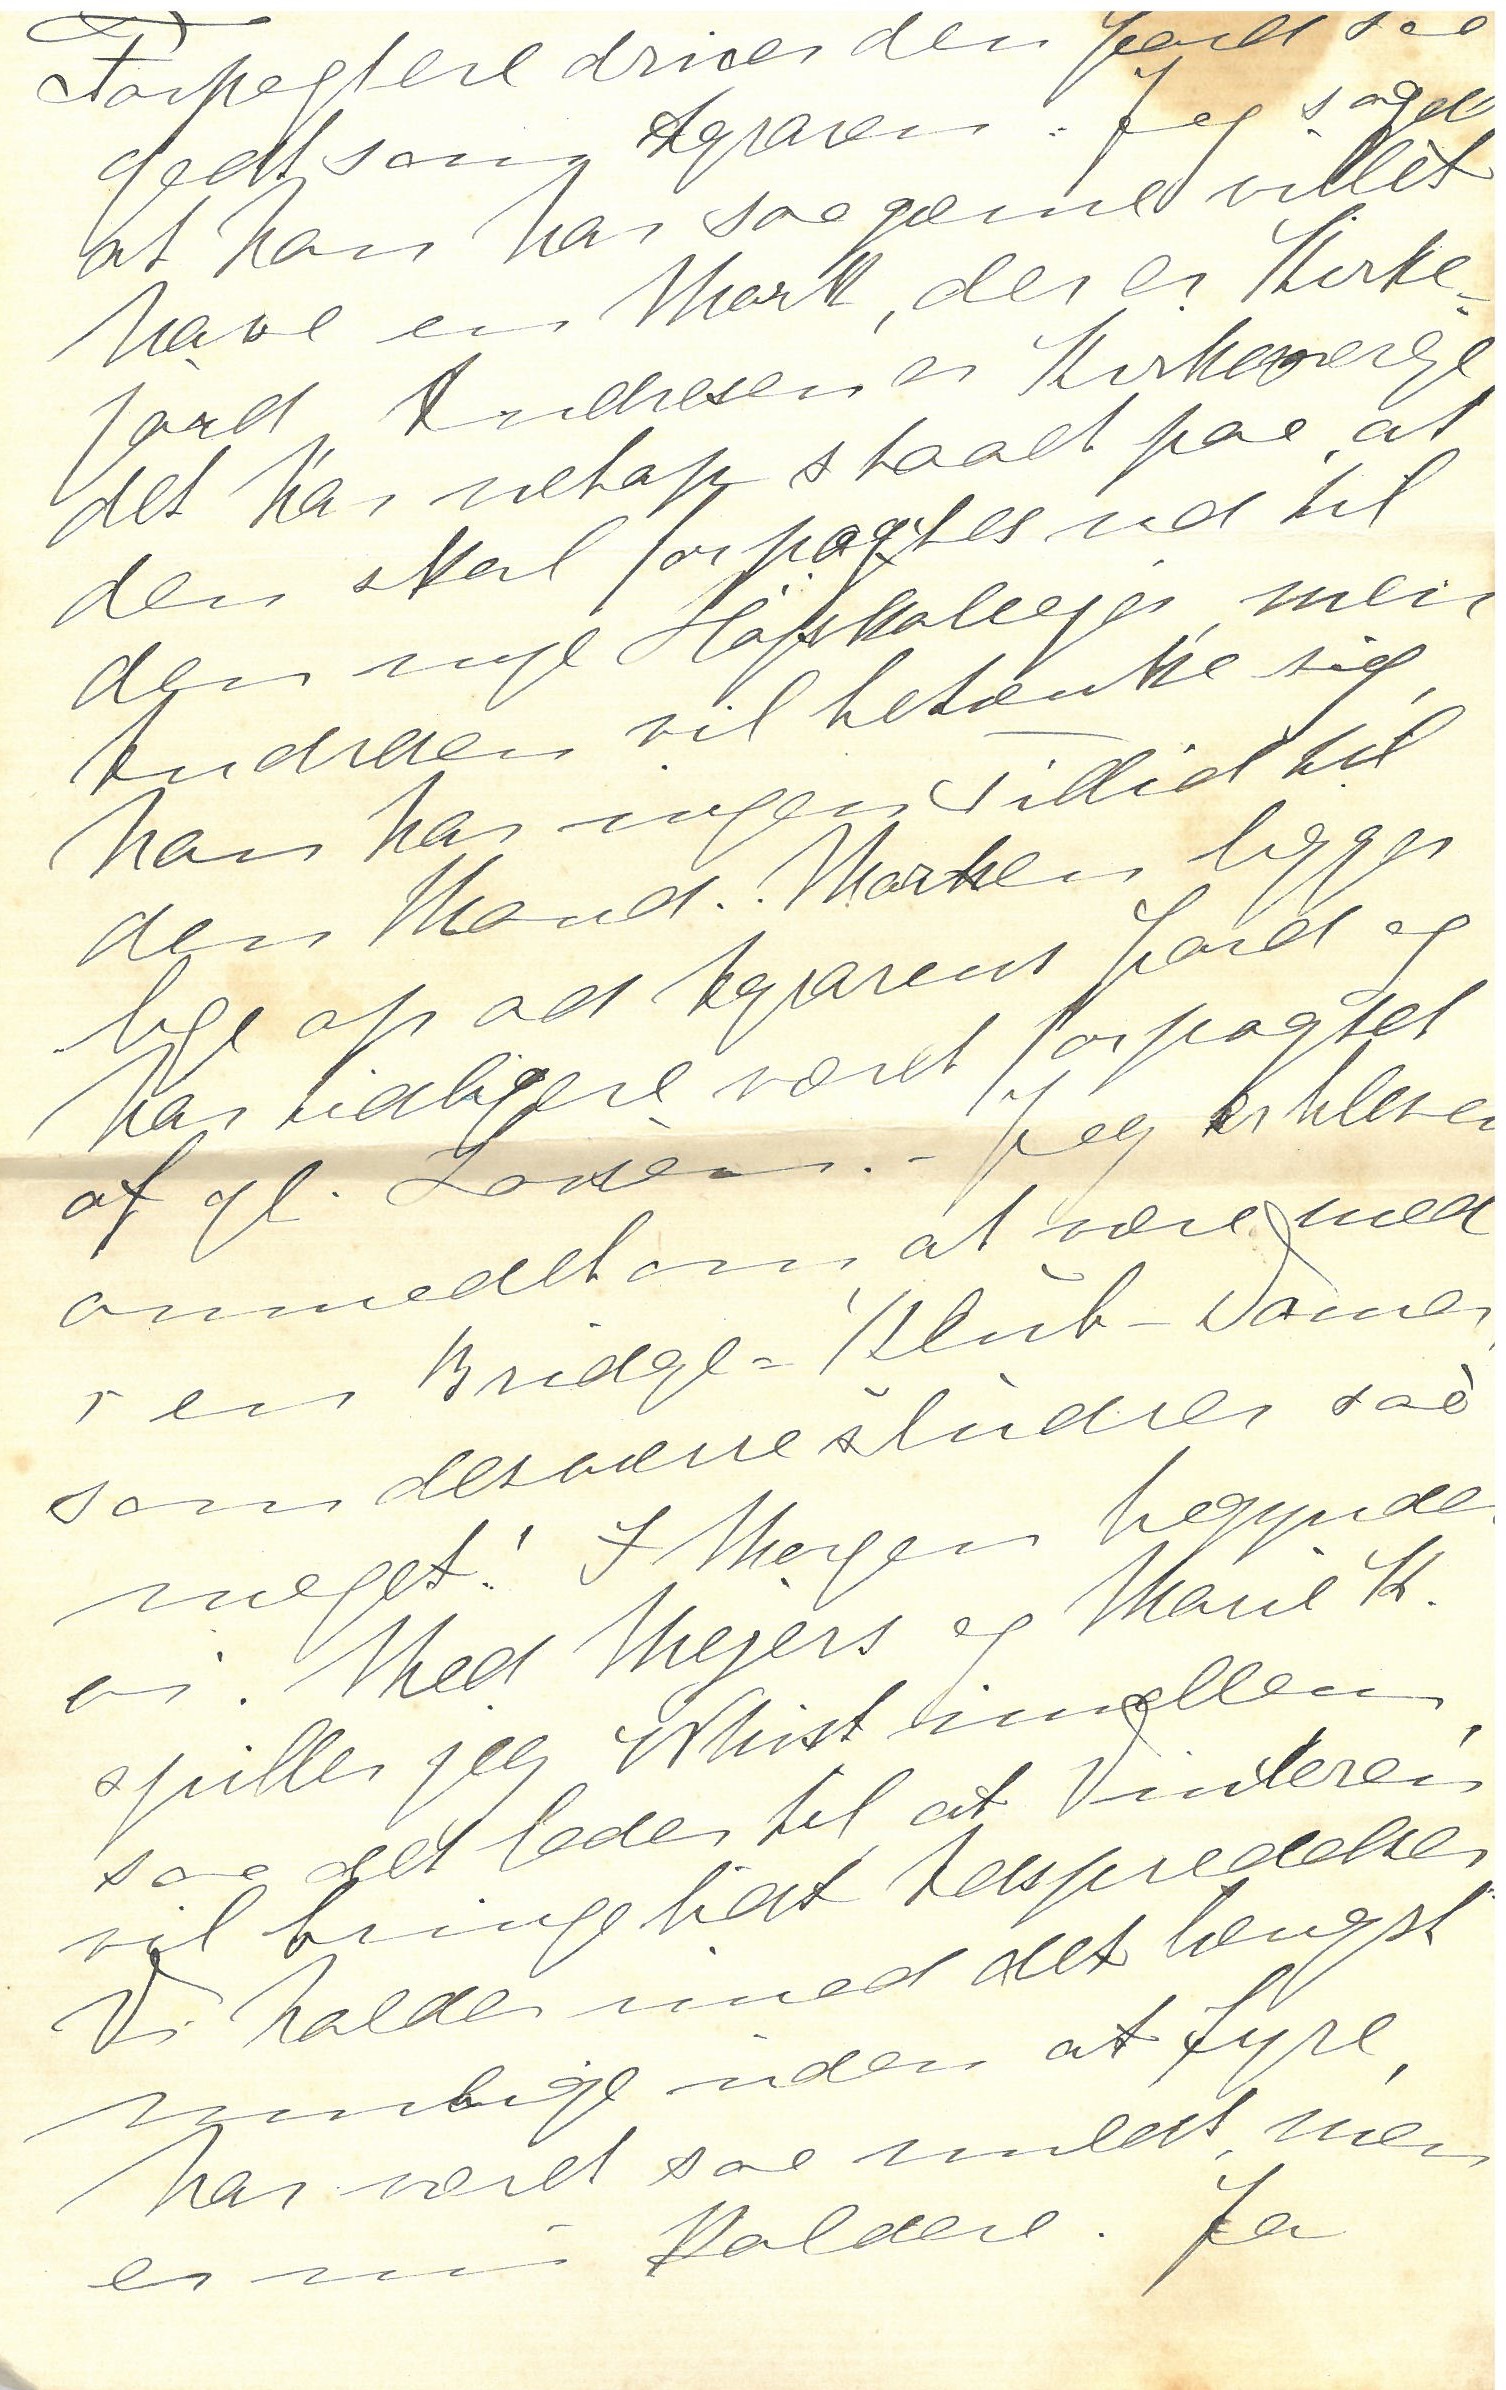 Forpagtere driver den Jord saa
godt som Agraren. Jeg sagde
at han har saa gerne villet
have en Mark, der er Kirke-
jord, Andresen er Kirkeværge,
det har netop staaet paa, at
den skal forpagtes ud til
den nye Højskoleejer, men
Andresen vil betænke sig,
han har ingen Tillid til
den Mand. Marken ligger
lige op ad Agrarens Jord og
har tidligere været forpagtet
af gl. Loren. - Jeg er bleven
anmodet om at være med
i en Bridge-Klub - Damer,
som desværre sludrer saa
meget! I Morgen begynder
vi. Med Mejers og Marie K.
spiller jeg Whist imellem,
saa det lader til at Vinteren
vil bringe lidt Adspredelser.
Vi holder ud det længst
mulige uden at fyre,
har været saa mildt, men
er nu Koldere. Ja